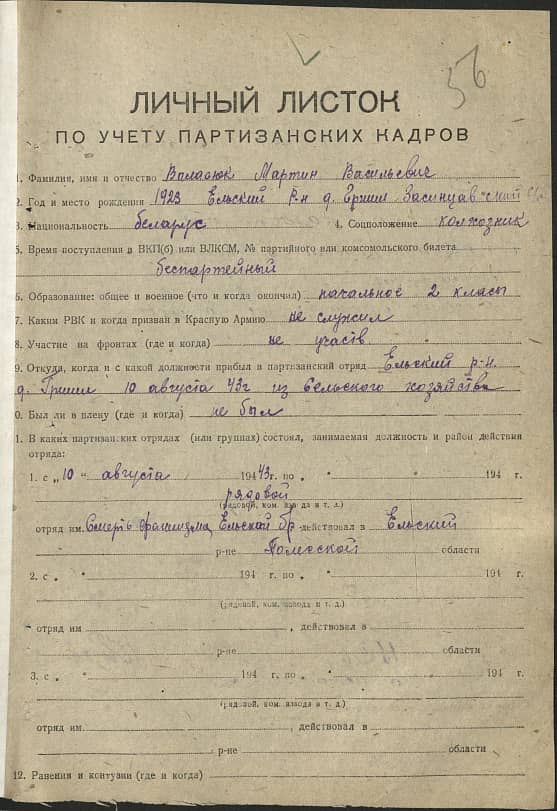 56
ЛИЧНЫЙ ЛИСТОК
ПО УЧЕТУ ПАРТИЗАНСКИХ КАДРОВ
1. Фамилия, имя и отчество Мартин Васильевич
2. Год и место рождения 1923 Ельский р-н д.
3. Национальность беларус 4. Соцположение колхозник
5. Время поступления в ВКП(б) или ВЛКСМ, № партийного или комсомольского билета
беспартейный
6. Образование: общее и военное (что и когда окончил) начальное 2 класы
7. Каким РВК и когда призван в Красную Армию не служил
8. Участие на фронтах (где и когда) не участв
9. Откуда, когда и с какой должности прибыл в партизанский отряд Ельский р-н.
д. 10 августа 43г из сельского хозяйства
0. Был ли в плену (где и когда) не был
1. В каких партизанских отрядах (или группах) состоял, занимаемая должность и район действия
отряда:
1. с „10 " августа 194 43 г. по " " 194 г.
рядовой
(рядовой, ком. взвода и т. д.)
отряд им. Смерть фашизма Ельской бр. действовал в Ельский
р-не Полесской области
2. с " " 194 г. по " " 194 г.
(рядовой, ком. взвода и т. д.)
отряд им , действовал в
р-не области
3. с " " 194 г. по " " 194 г.
(рядовой, ком. взвода и т. д.)
отряд им. , действовал в
р-не области
12. Ранения и контузии (где и когда)